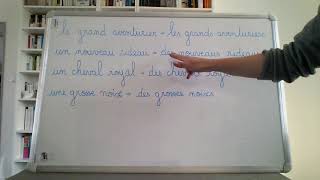 le grand aventurier → les grands aventuriers
un nouveau rideau → des nouveaux rideaux
un cheval royal → des chevaux royaux
une grosse noix → des grosses noix